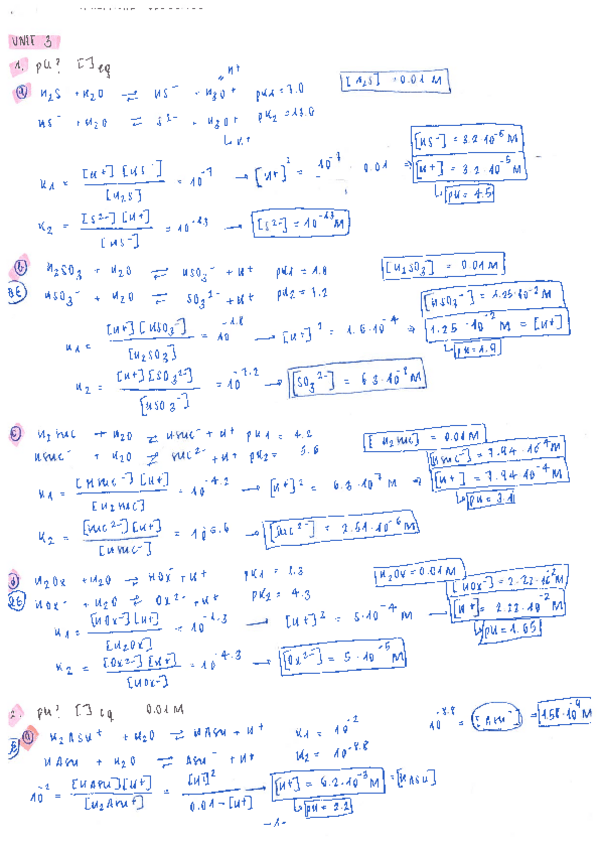 UNIT 3
1. pH? [ ]eq
a) H2S + H2O ⇌ HS⁻ + H3O⁺ pK1 = 7.0 [H2S] = 0.01 M
H⁺
HS⁻ + H2O ⇌ S²⁻ + H3O⁺ pK2 = 13.0
↳ H⁺
K1 = [H⁺][HS⁻] / [H2S] = 10⁻⁷ → [H⁺]² = 10⁻⁷ · 0.01 ⇒ [HS⁻] = 3.2·10⁻⁵ M
[H⁺] = 3.2·10⁻⁵ M
↳ pH = 4.5
K2 = [S²⁻][H⁺] / [HS⁻] = 10⁻¹³ → [S²⁻] = 10⁻¹³ M
b) H2SO3 + H2O ⇌ HSO3⁻ + H⁺ pK1 = 1.8 [H2SO3] = 0.01 M
HSO3⁻ + H2O ⇌ SO3²⁻ + H⁺ pK2 = 7.2
K1 = [H⁺][HSO3⁻] / [H2SO3] = 10⁻¹·⁸ → [H⁺]² = 1.6·10⁻⁴ ⇒ [HSO3⁻] = 1.25·10⁻² M
1.25·10⁻² M = [H⁺]
↳ pH = 1.9
K2 = [H⁺][SO3²⁻] / [HSO3⁻] = 10⁻⁷·² → [SO3²⁻] = 6.3·10⁻⁸ M
c) H2suc + H2O ⇌ Hsuc⁻ + H⁺ pK1 = 4.2 [H2suc] = 0.01 M
Hsuc⁻ + H2O ⇌ suc²⁻ + H⁺ pK2 = 5.6 [Hsuc⁻] = 7.94·10⁻⁴ M
K1 = [Hsuc⁻][H⁺] / [H2suc] = 10⁻⁴·² → [H⁺]² = 6.3·10⁻⁷ M ⇒ [H⁺] = 7.94·10⁻⁴ M
↳ pH = 3.1
K2 = [suc²⁻][H⁺] / [Hsuc⁻] = 10⁻⁵·⁶ → [suc²⁻] = 2.51·10⁻⁶ M
d) H2Ox + H2O ⇌ HOx⁻ + H⁺ pK1 = 1.3 [H2Ox] = 0.01 M
HOx⁻ + H2O ⇌ Ox²⁻ + H⁺ pK2 = 4.3 [HOx⁻] = 2.22·10⁻² M
K1 = [HOx⁻][H⁺] / [H2Ox] = 10⁻¹·³ → [H⁺]² = 5·10⁻⁴ M → [H⁺] = 2.22·10⁻² M
↳ pH = 1.65
K2 = [Ox²⁻][H⁺] / [HOx⁻] = 10⁻⁴·³ → [Ox²⁻] = 5·10⁻⁵ M
2. pH? [ ]eq 0.01 M
a) H2Asn⁺ + H2O ⇌ HAsn + H⁺ K1 = 10⁻² 10⁻⁸·⁸ = [Asn⁻] = 1.58·10⁻⁹ M
HAsn + H2O ⇌ Asn⁻ + H⁺ K2 = 10⁻⁸·⁸
10⁻² = [HAsn][H⁺] / [H2Asn⁺] = [H⁺]² / 0.01 − [H⁺] → [H⁺] = 6.2·10⁻³ M = [HAsn]
↳ pH = 2.2
-1-